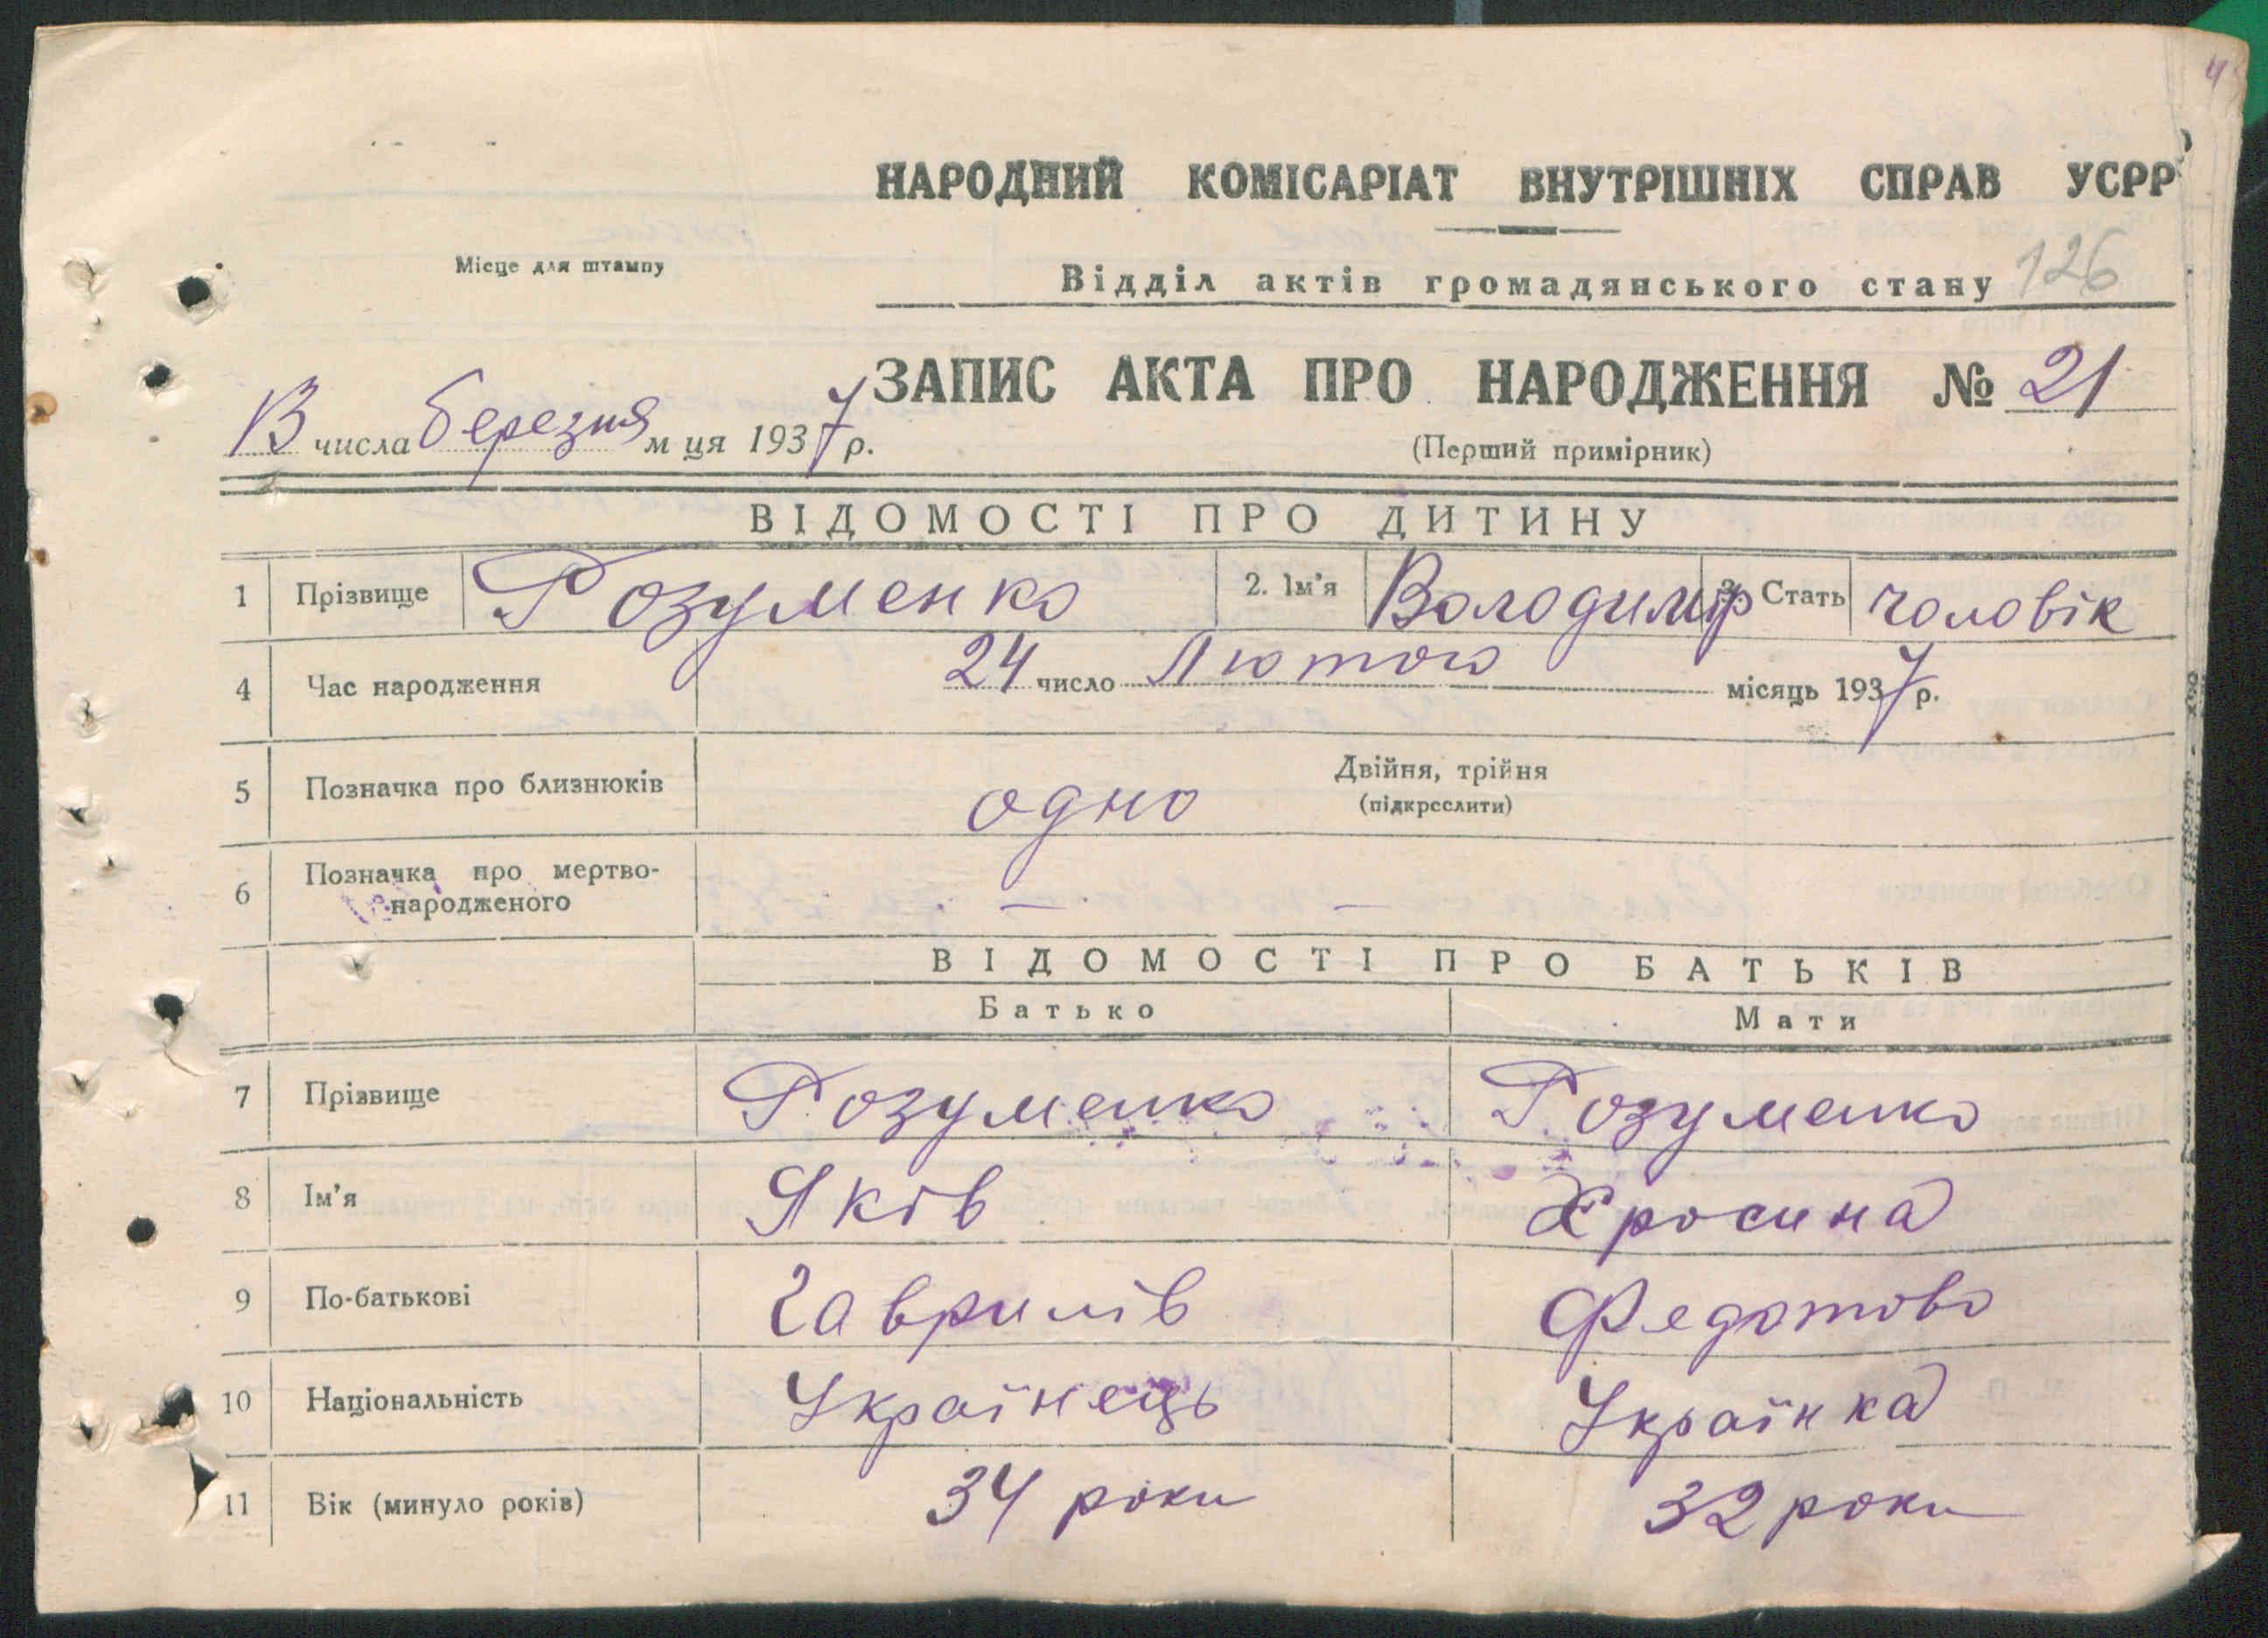 НАРОДНИЙ КОМІСАРІАТ ВНУТРІШНІХ СПРАВ УСРР
Місце для штампу
Відділ актів громадянського стану 126
ЗАПИС АКТА ПРО НАРОДЖЕННЯ № 21
13 числа березня м ця 1937 р.
(Перший примірник)
ВІДОМОСТІ ПРО ДИТИНУ
1 Прізвище Розуменко 2. Ім'я Володимір 3. Стать чоловік
4 Час народження 24 число Лютого місяць 1937 р.
5 Позначка про близнюків одно Двійня, трійня
(підкреслити)
6 Позначка про мертво-
народженого — —
ВІДОМОСТІ ПРО БАТЬКІВ
Батько Мати
7 Прізвище Розуменко Розуменко
8 Ім'я Яків Хросина
9 По-батькові Гаврилів Федотово
10 Національність Українець Українка
11 Вік (минуло років) 34 роки 32 роки